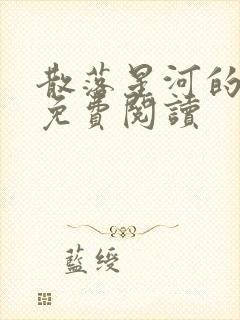 散落星河的
免費閱讀
藍綬